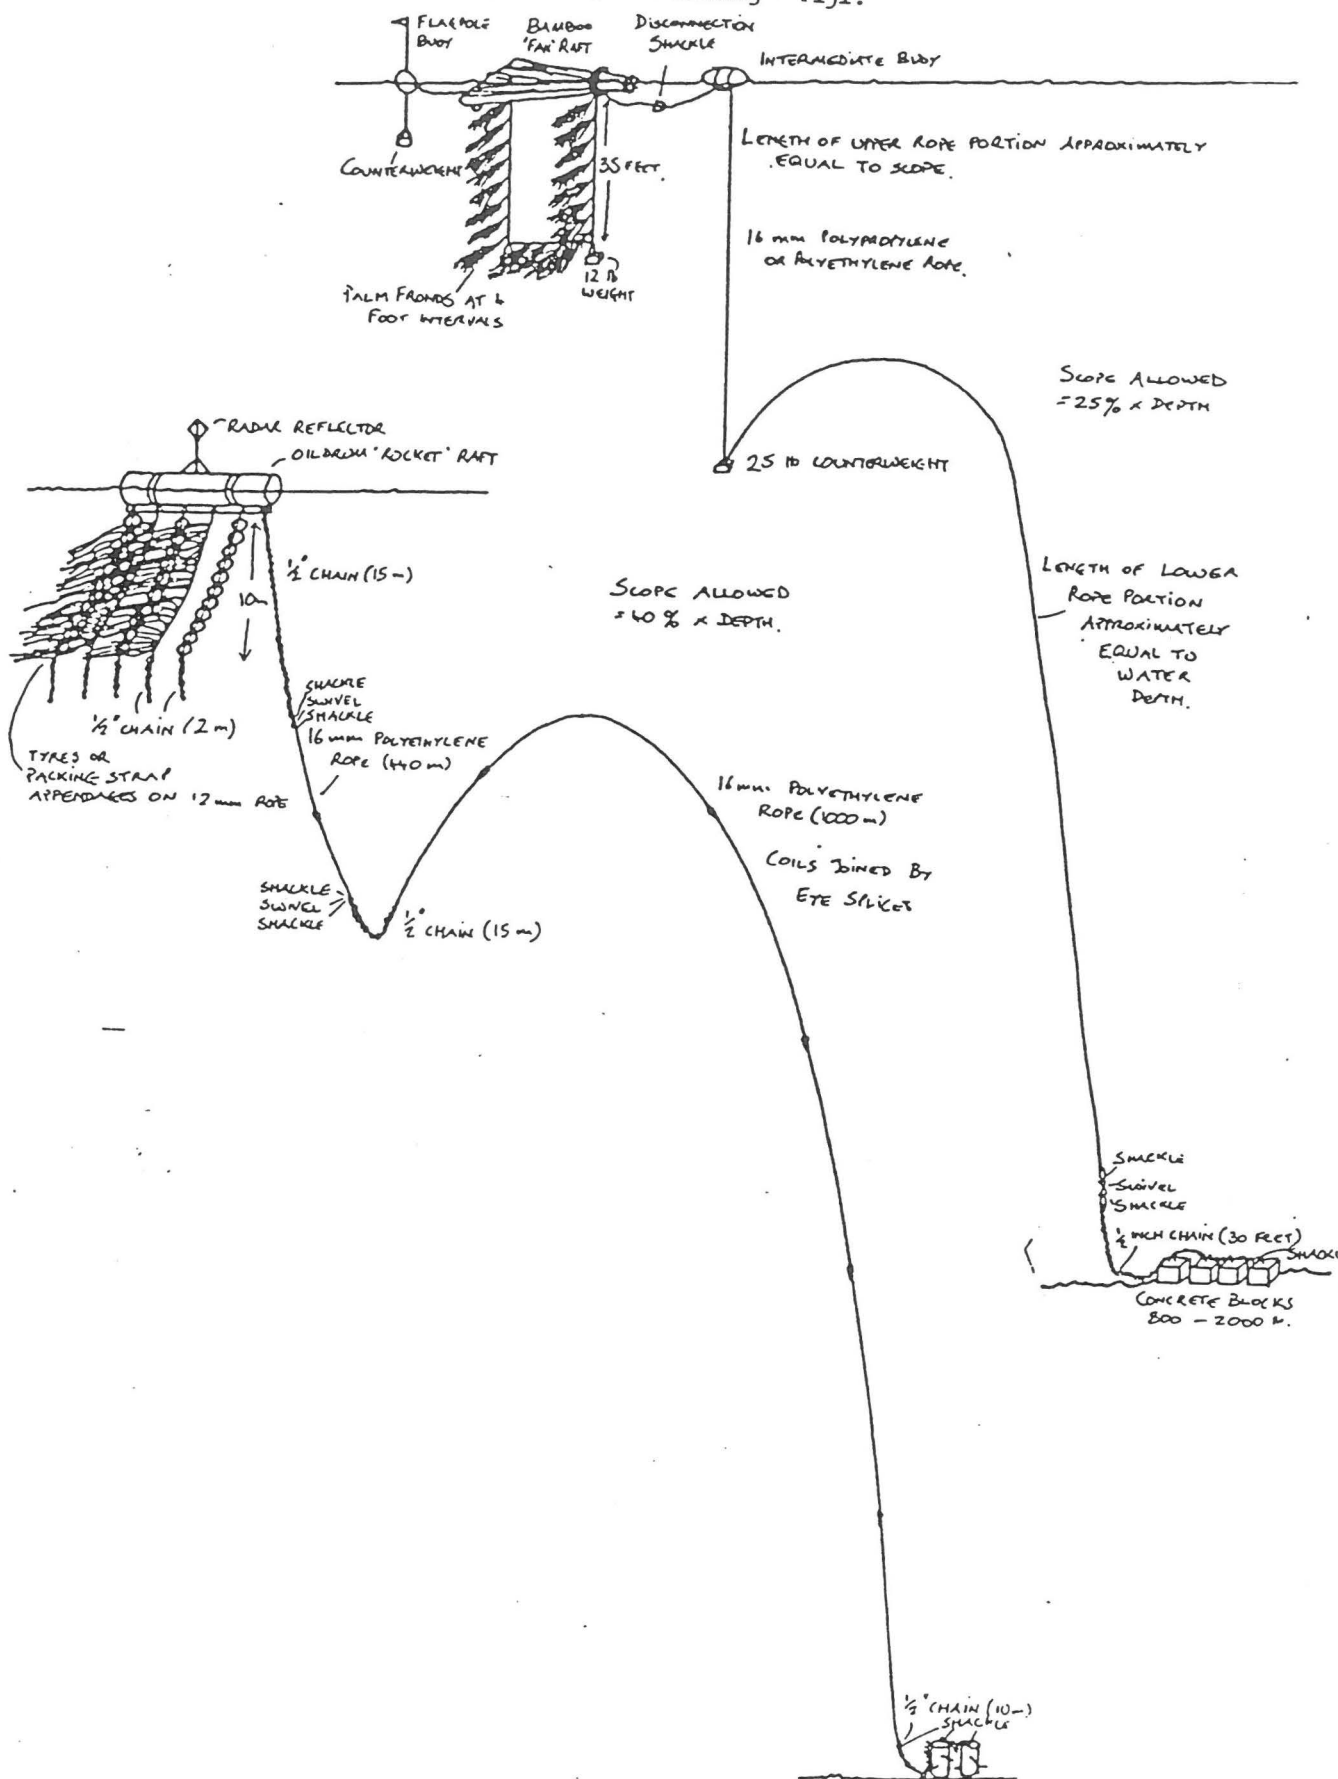 Fiji.
FLAGPOLE
BUOY
BAMBOO
'FAN' RAFT
DISCONNECTION
SHACKLE
INTERMEDIATE BUOY
COUNTERWEIGHT
35 FEET.
12 lb
WEIGHT
PALM FRONDS AT 4
FOOT INTERVALS
LENGTH OF UPPER ROPE PORTION APPROXIMATELY
EQUAL TO SCOPE.
16 mm POLYPROPYLENE
OR POLYETHYLENE ROPE.
SCOPE ALLOWED
=25% x DEPTH
25 lb COUNTERWEIGHT
RADAR REFLECTOR
OILDRUM 'ROCKET' RAFT
1/2" CHAIN (15m)
10m
SCOPE ALLOWED
=40% x DEPTH.
LENGTH OF LOWER
ROPE PORTION
APPROXIMATELY
EQUAL TO
WATER
DEPTH.
SHACKLE
SWIVEL
SHACKLE
16 mm POLYETHYLENE
ROPE (440 m)
1/2" CHAIN (2 m)
TYRES OR
PACKING STRAP
APPENDAGES ON 12 mm ROPE
16 mm. POLYETHYLENE
ROPE (1000 m)
COILS JOINED BY
EYE SPLICES
SHACKLE
SWIVEL
SHACKLE
1/2" CHAIN (15 m)
SHACKLE
SWIVEL
SHACKLE
1/2 INCH CHAIN (30 FEET)
CONCRETE BLOCKS
800 - 2000
1/2" CHAIN (10m)
SHACKLE